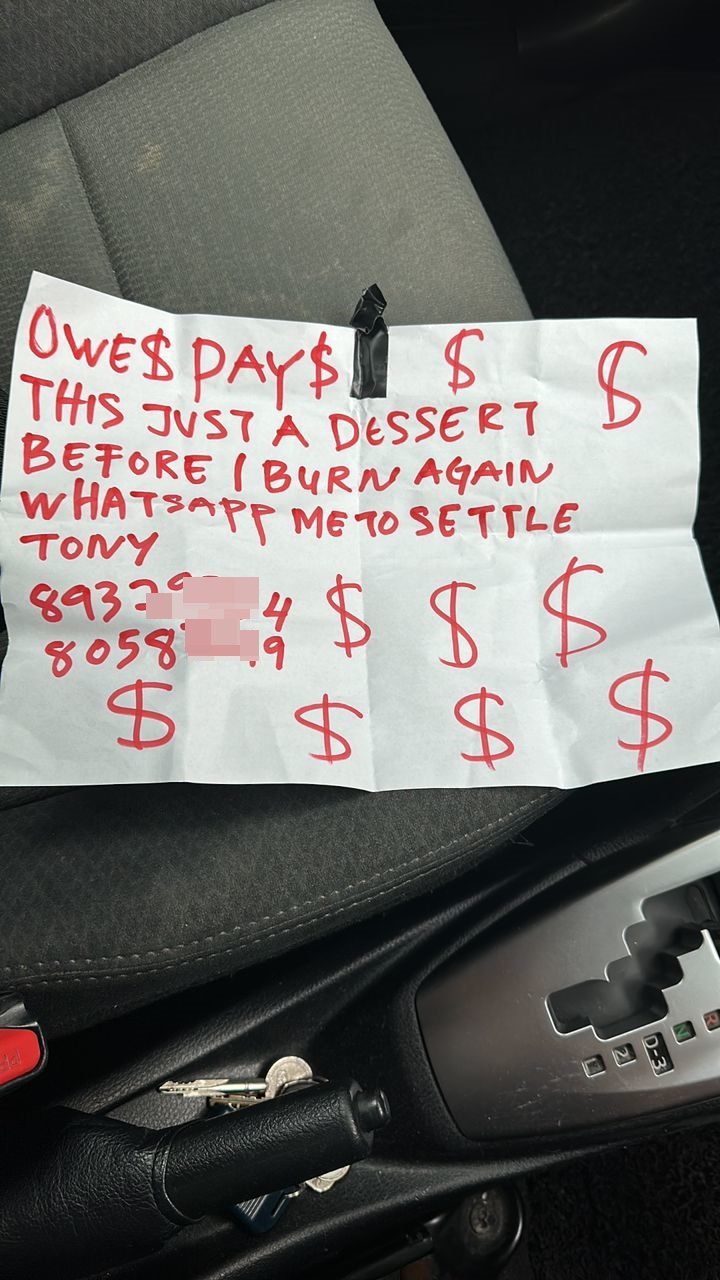 OWE$ PAY$ $ $
THIS JUST A DESSERT
BEFORE I BURN AGAIN
WHATSAPP ME TO SETTLE
TONY
4 $ $ $
8058 19
$ $ $ $
2
D-3
N
R